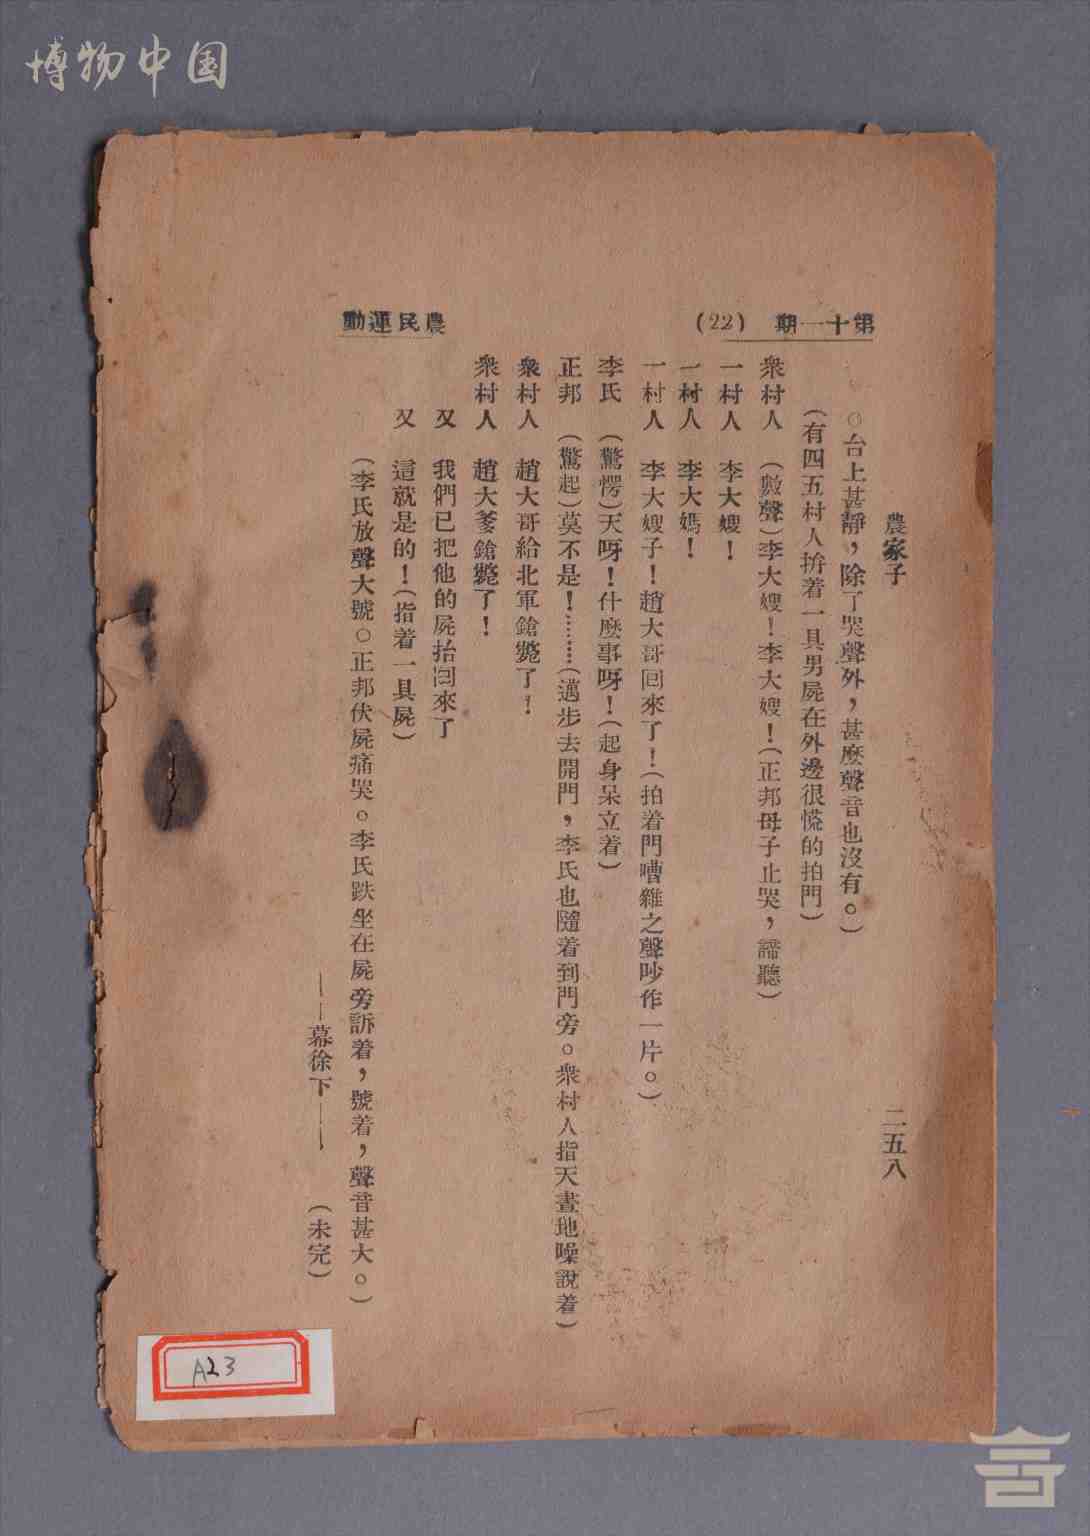 博物中国
第十一期 (22) 農民運動
農家子 二五八
○台上甚靜，除了哭聲外，甚麼聲音也沒有。）
（有四五村人拚着一具男屍在外邊很慌的拍門）
衆村人 （數聲）李大嫂！李大嫂！（正邦母子止哭，諦聽）
一村人 李大嫂！
一村人 李大媽！
一村人 李大嫂子！趙大哥回來了！（拍着門嘈雜之聲吵作一片。）
李氏 （驚愕）天呀！什麼事呀！（起身呆立着）
正邦 （驚起）莫不是！………（邁步去開門，李氏也隨着到門旁。衆村人指天畫地噪說着）
衆村人 趙大哥給北軍鎗斃了！
衆村人 趙大爹鎗斃了！
又 我們已把他的屍抬回來了
又 這就是的！（指着一具屍）
（李氏放聲大號○正邦伏屍痛哭。李氏跌坐在屍旁訴着，號着，聲音甚大。）
——幕徐下—— （未完）
A23